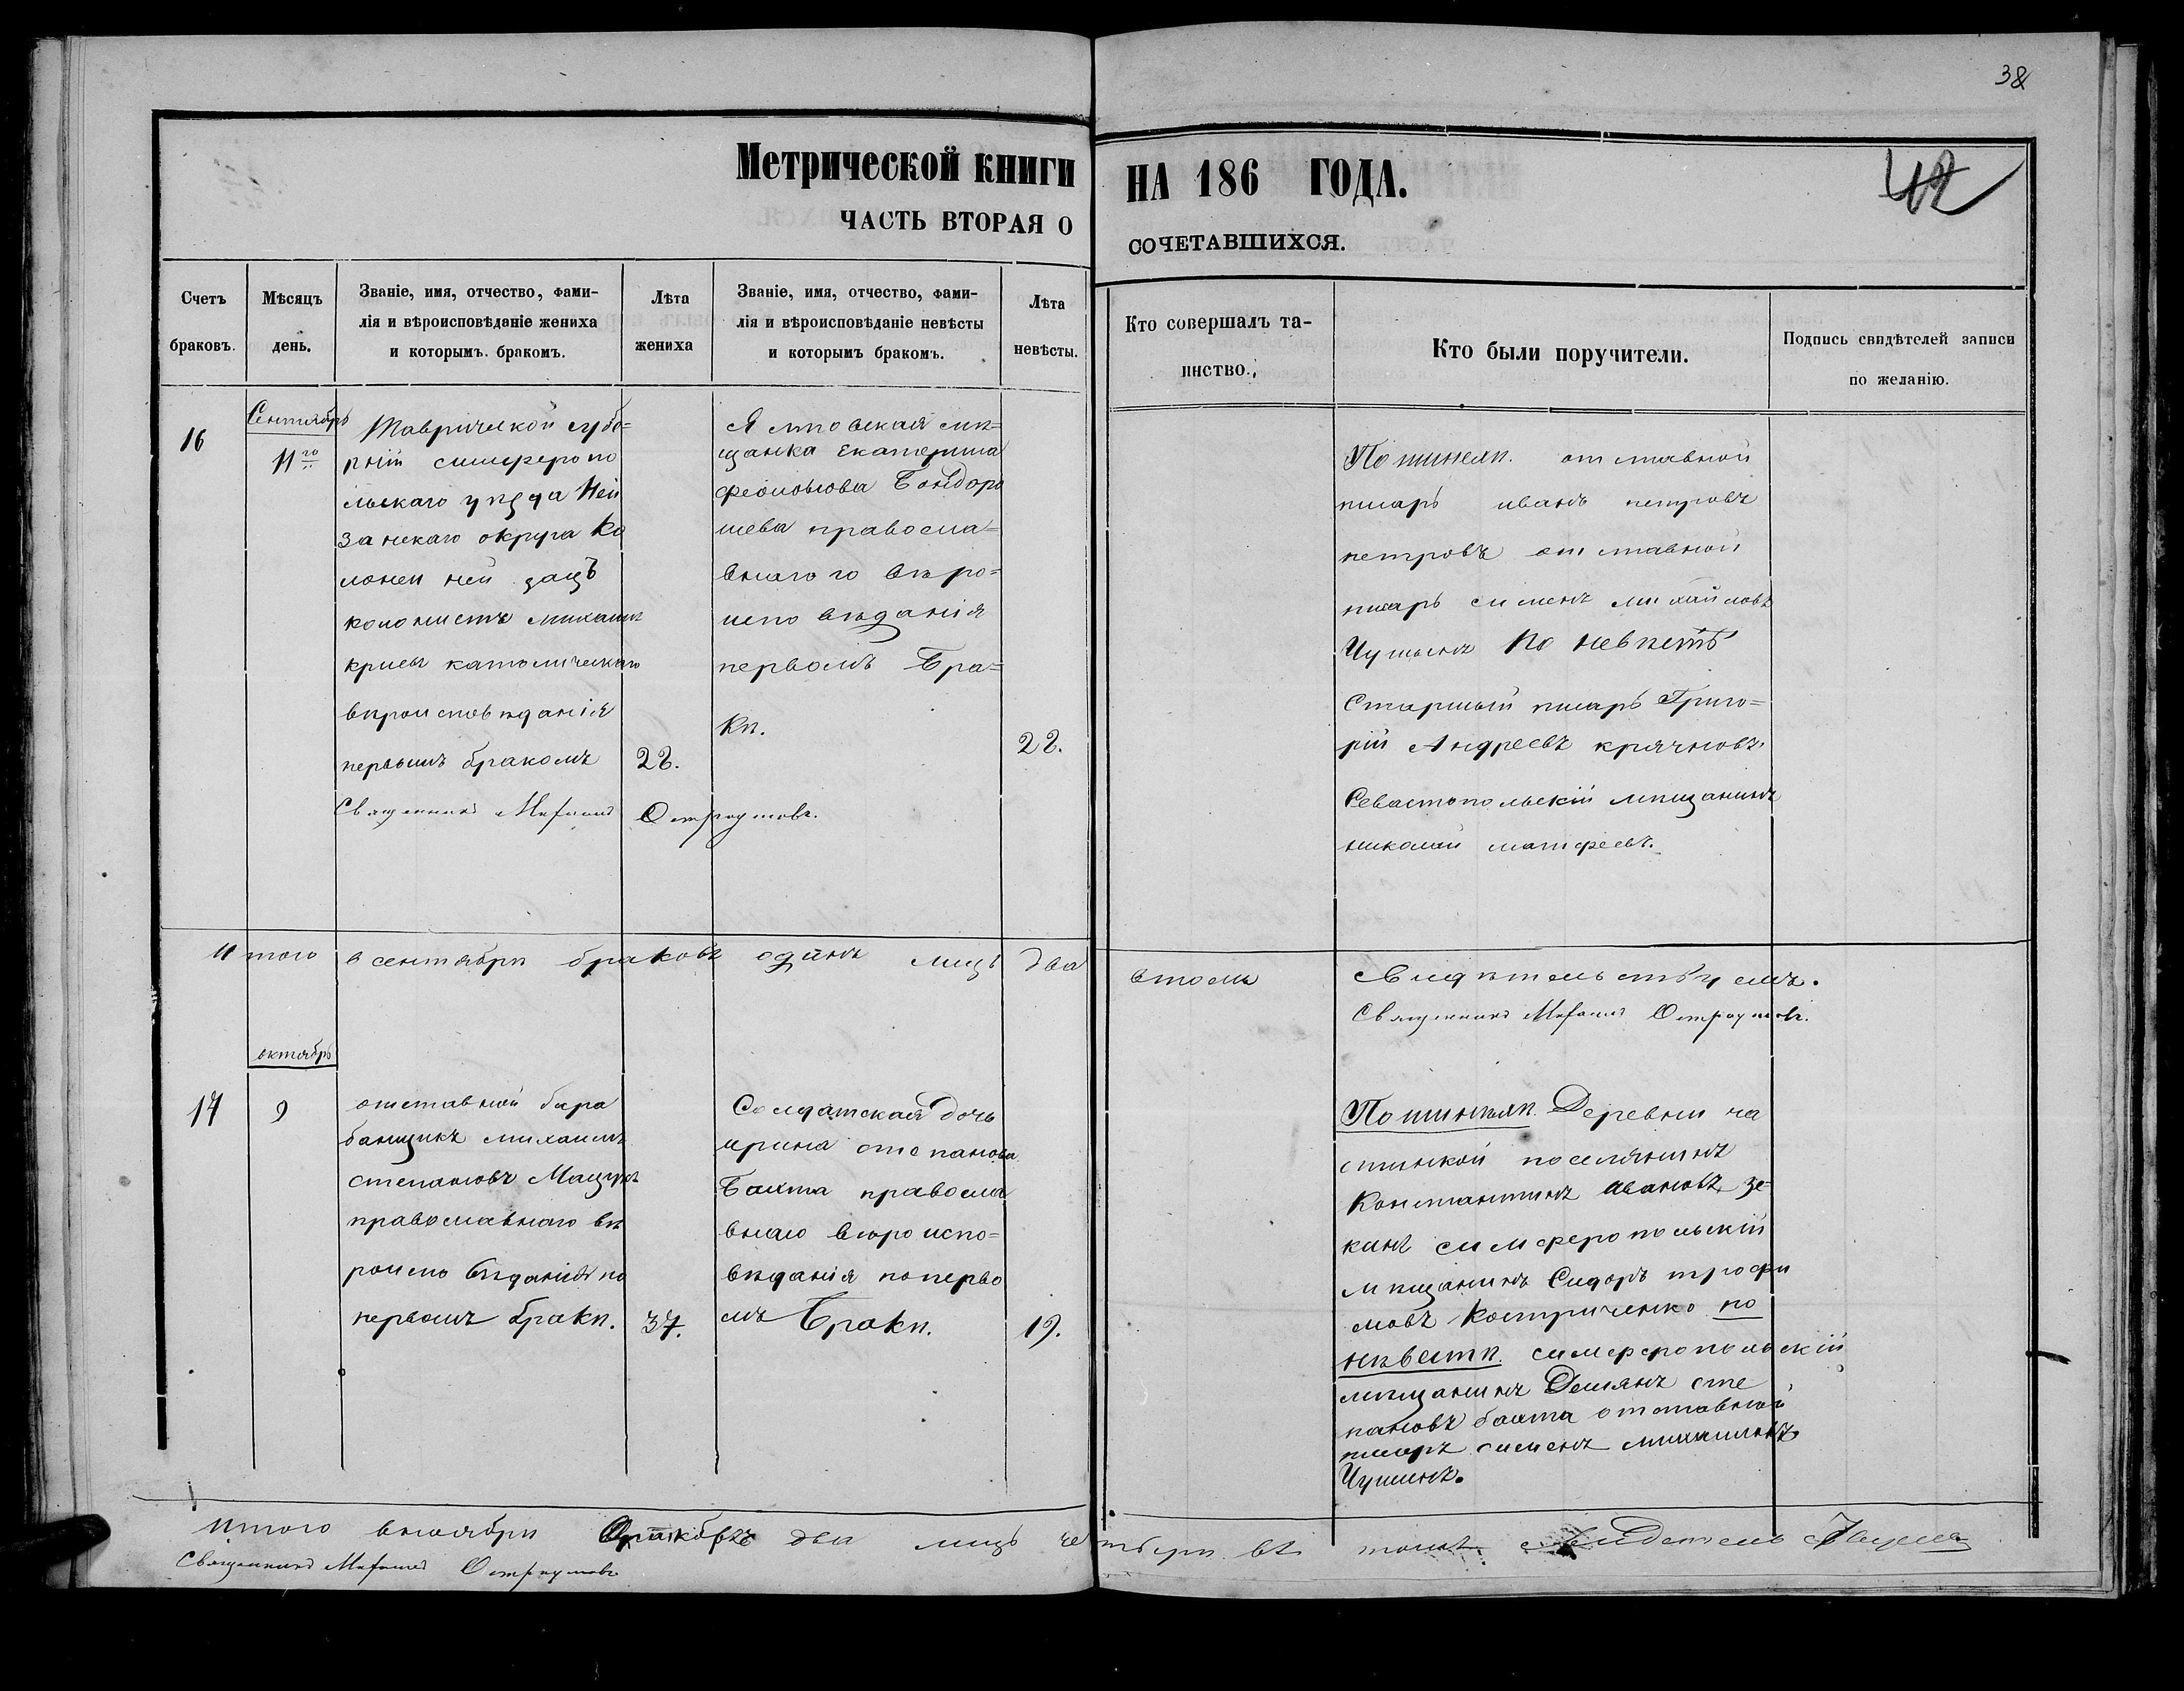 38
42
Метрической книги НА 186 ГОДА.
ЧАСТЬ ВТОРАЯ О СОЧЕТАВШИХСЯ.
Счетъ браковъ.
Мѣсяцъ день.
Званіе, имя, отчество, фами-
лія и вѣроисповѣданіе жениха
и которымъ. бракомъ.
Лѣта
жениха
Званіе, имя, отчество, фами-
лія и вѣроисповѣданіе невѣсты
и которымъ бракомъ.
Лѣта
невѣсты.
Кто совершалъ та-
инство.
Кто были поручители.
Подпись свидѣтелей записи
по желанію.
16
Сентябрь
11го
Таврической губе=
рніи симферопо
льскаго уѣзда Ней
зацкаго округа Ко
лоніи ней зацъ
колонистъ михаилъ
криеъ католическаго
вѣроисповѣданія
первымъ бракомъ
22.
Священникъ Остроумовъ.
Ялтовская мѣ=
щанка Екатерина
Бондоре
шева правосла=
внаго вѣро=
исповѣданія
первомъ Бра=
кѣ.
22.
По жинехѣ. отставной
писарь иванъ петровъ
петровъ отставной
писарь сименъ михайловъ
Чушинъ По невѣстѣ
Старшый писарь Григо=
рій Андреевъ крячковъ.
Севастопольскій мѣщанинъ
николай матфеевъ.
Итого в сентябрѣ браковъ одинъ лицъ два
втомъ Свидѣтельствуемъ.
Священникъ Остроумовъ.
октябрь
17
9
отставной бара
банщикъ михаилъ
степановъ Мацукъ
православнаго вѣ
роисповѣданія по
первомъ бракѣ.
37.
Солдатская дочь
ирина степанова
Бахта правосла
внаго вѣроиспо=
вѣданія поперво
мъ Бракѣ.
19.
По жинихѣ. Деревни ча
стинкой поселянинъ
Константинъ Ивановъ зе=
кинъ симферопольскій
мѣщанинъ Сидоръ трофи
мовъ Костриченко по
нѣвестѣ. симферопольскій
мѣщанинъ Демянъ сте
пановъ бахта отставной
писарь сименъ михаиловъ
Чушинъ.
Итого вноябрѣ Браковъ два лицъ четвери въ томъ
Священникъ Остроумовъ